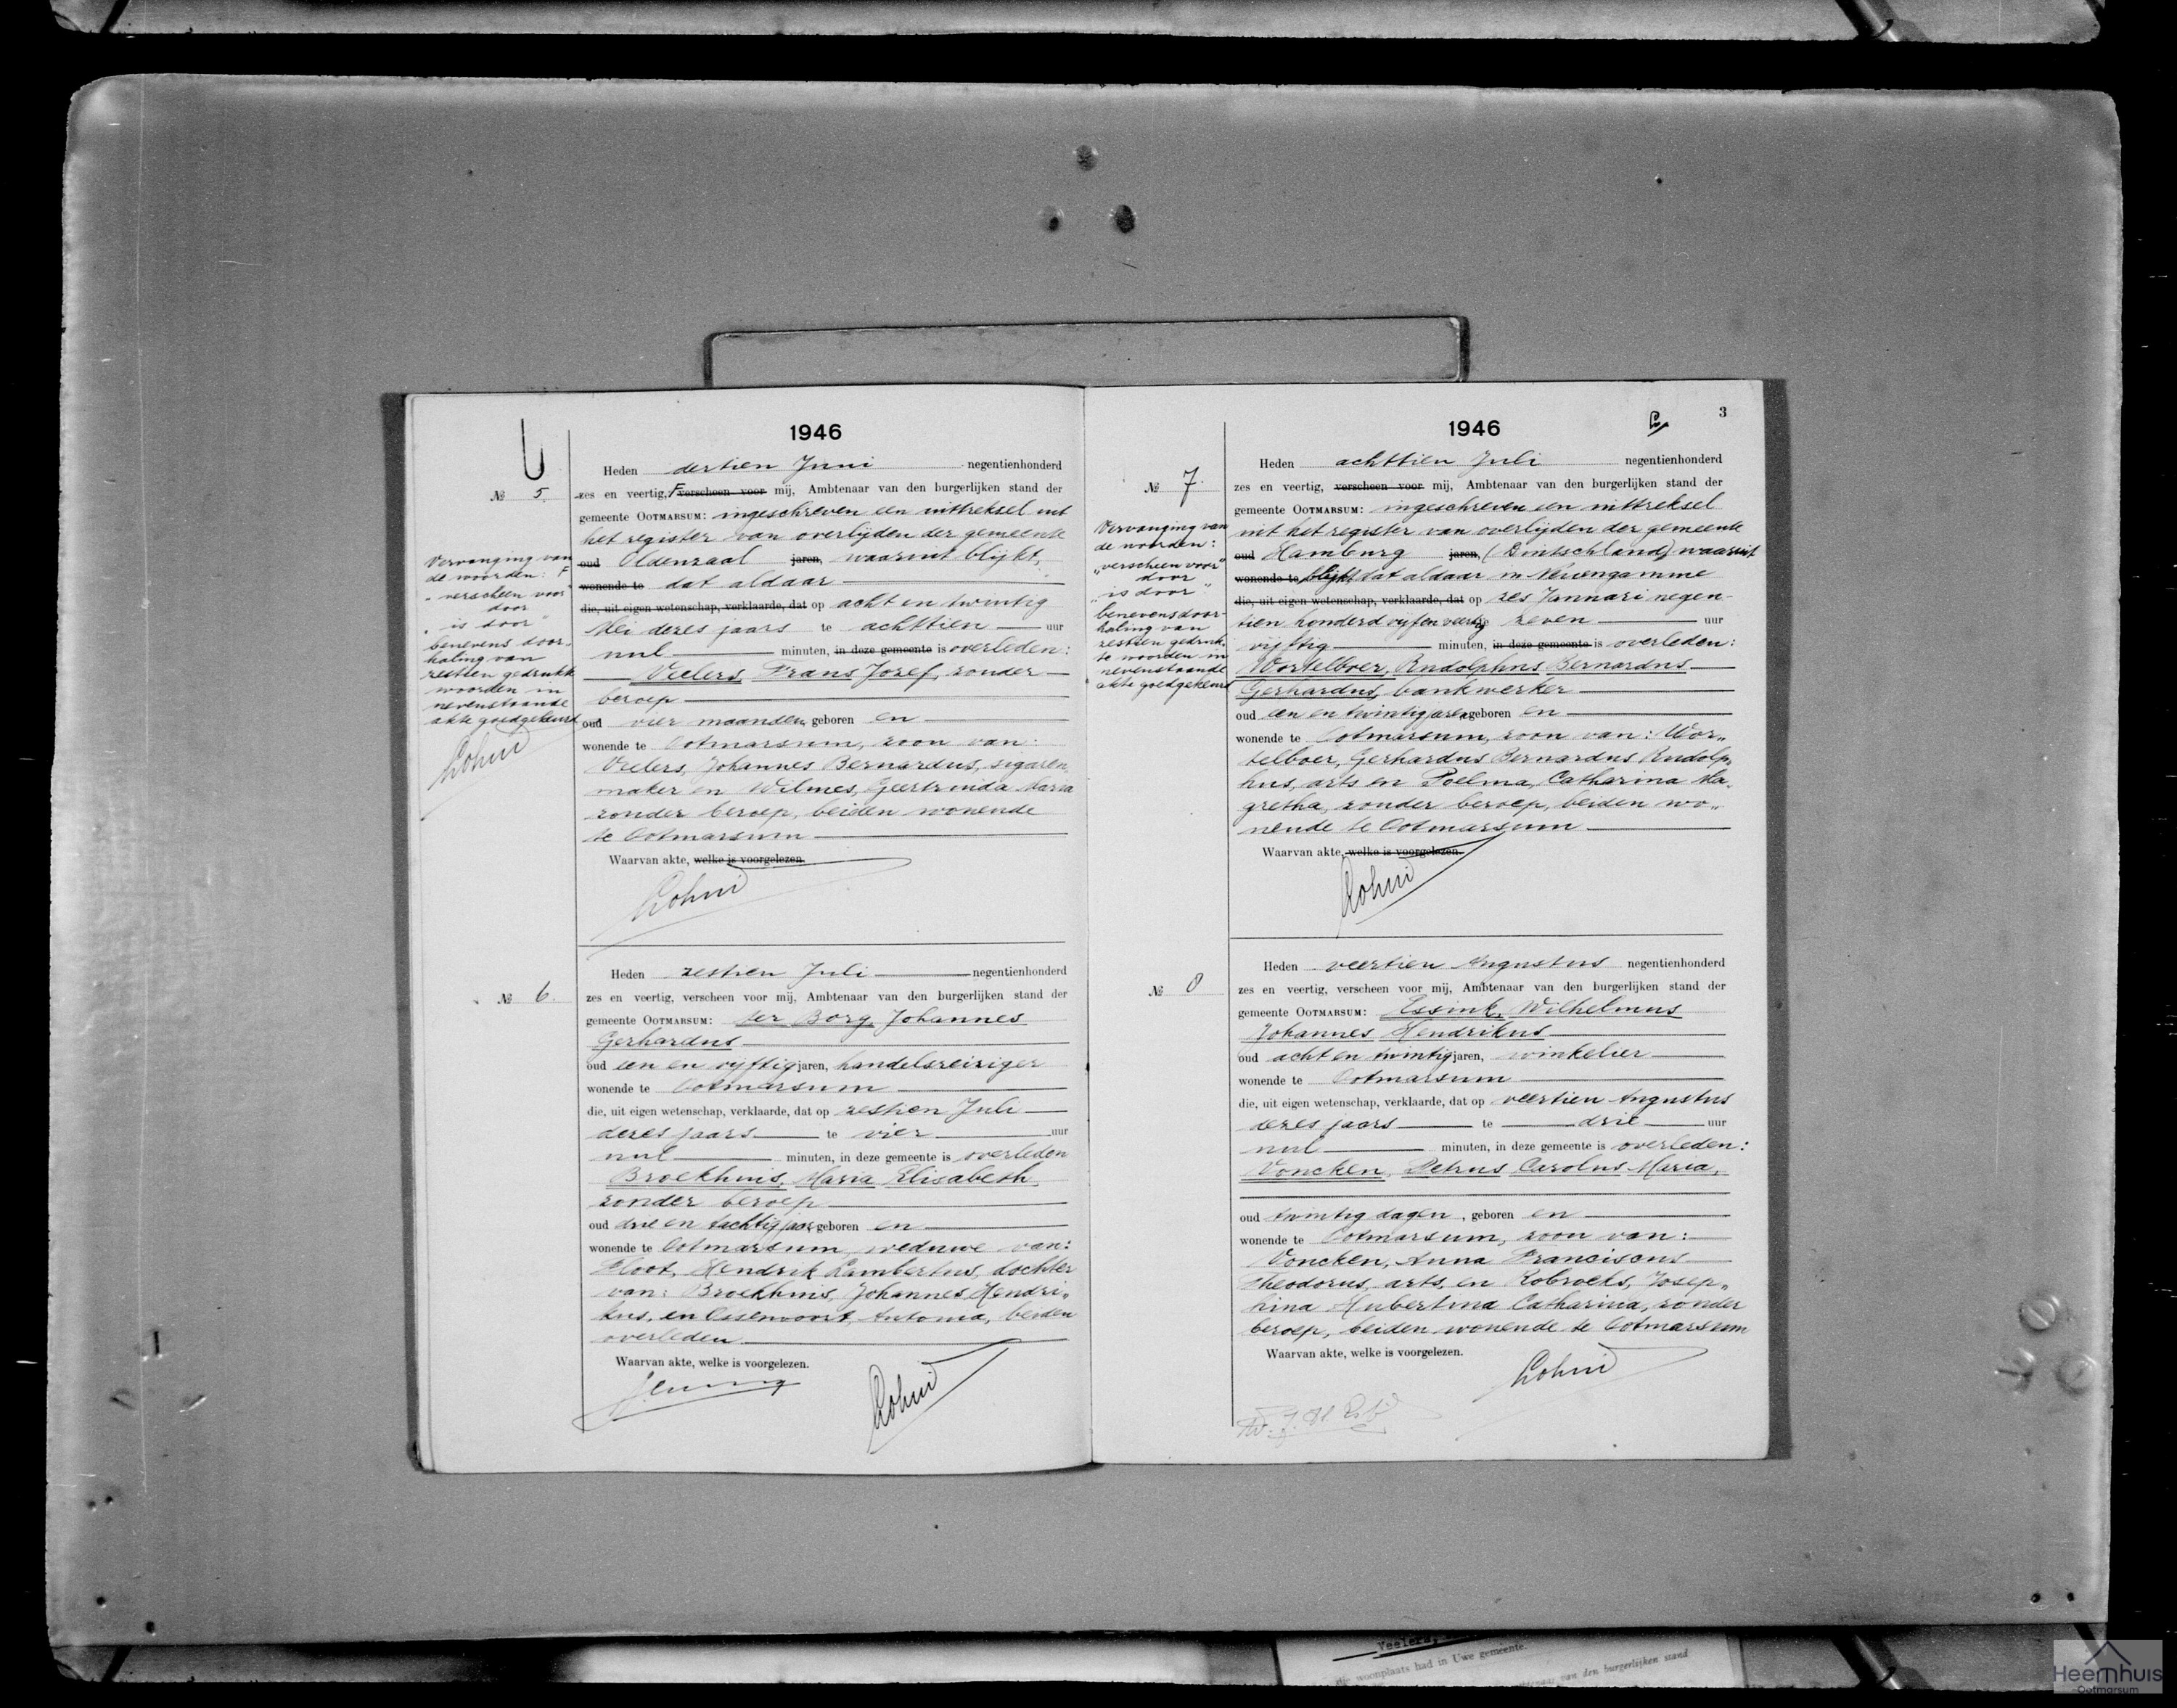 1946
Heden dertien Juni negentienhonderd
№ 5. zes en veertig, verscheen voor mij, Ambtenaar van den burgerlijken stand der
gemeente OOTMARSUM: ingeschreven een uittreksel uit
het register van overlijden der gemeente
oud Oldenzaal jaren, waaruit blijkt,
wonende te dat aldaar
die, uit eigen wetenschap, verklaarde, dat op acht en twintig
Mei dezes jaars te achttien uur
nul minuten, in deze gemeente is overleden:
Veelers, Frans Jozef, zonder
beroep
oud vier maanden, geboren en
wonende te Ootmarsum, zoon van:
Veelers, Johannes Bernardus, sigaren
maker en Wilmes, Geertruida Maria
zonder beroep, beiden wonende
te Ootmarsum
Waarvan akte, welke is voorgelezen.
Vervanging van
de woorden: F
„verscheen voor
door
„is door"
benevens door-
haling van
zestien gedrukte
woorden in
nevenstaande
akte goedgekeurd
Heden zestien Juli negentienhonderd
№ 6. zes en veertig, verscheen voor mij, Ambtenaar van den burgerlijken stand der
gemeente OOTMARSUM: ter Borg, Johannes
Gerhardus
oud een en vijftig jaren, handelsreiziger
wonende te Ootmarsum
die, uit eigen wetenschap, verklaarde, dat op zestien Juli
dezes jaars te vier uur
nul minuten, in deze gemeente is overleden
Broekhuis, Maria Elisabeth,
zonder beroep
oud drie en tachtig jaar, geboren en
wonende te Ootmarsum, weduwe van:
Floot, Hendrik Lambertus, dochter
van: Broekhuis, Johannes Hendri„
kus, en Antonia, beiden
overleden
Waarvan akte, welke is voorgelezen.
3
1946
Heden achttien Juli negentienhonderd
№ 7. zes en veertig, verscheen voor mij, Ambtenaar van den burgerlijken stand der
gemeente OOTMARSUM: ingeschreven een uittreksel
uit het register van overlijden der gemeente
oud Hamburg jaren, (Duitschland) waaruit
wonende te blijkt, dat aldaar in Neuengamme
die, uit eigen wetenschap, verklaarde, dat op zes Januari negen-
tien honderd vijf en veertig zeven uur
vijftig minuten, in deze gemeente is overleden:
Wortelboer, Rudolphus Bernardus
Gerhardus, bankwerker
oud een en twintig jaren, geboren en
wonende te Ootmarsum, zoon van: Wor„
telboer, Gerhardus Bernardus Rudolp„
hus, arts en Poelma, Catharina Ma„
gretha, zonder beroep, beiden wo„
nende te Ootmarsum
Waarvan akte, welke is voorgelezen.
Vervanging van
de woorden:
„verscheen voor"
door
„is door"
benevens door-
haling van
zestien gedruk-
te woorden in
nevenstaande
akte goedgekeurd
Heden veertien Augustus negentienhonderd
№ 8 zes en veertig, verscheen voor mij, Ambtenaar van den burgerlijken stand der
gemeente OOTMARSUM: Essink, Wilhelmus
Johannes Hendrikus
oud acht en twintig jaren, winkelier
wonende te Ootmarsum
die, uit eigen wetenschap, verklaarde, dat op veertien Augustus
dezes jaars te drie uur
nul minuten, in deze gemeente is overleden:
Voncken, Petrus Carolus Maria,
oud twintig dagen, geboren en
wonende te Ootmarsum, zoon van:
Voncken, Anna Franciscus
Theodorus, arts, en Kobroeks, Josep„
hina Hubertina Catharina, zonder
beroep, beiden wonende te Ootmarsum
Waarvan akte, welke is voorgelezen.
woonplaats had in Uwe gemeente.
van den burgerlijken stand
Heemhuis
Ootmarsum